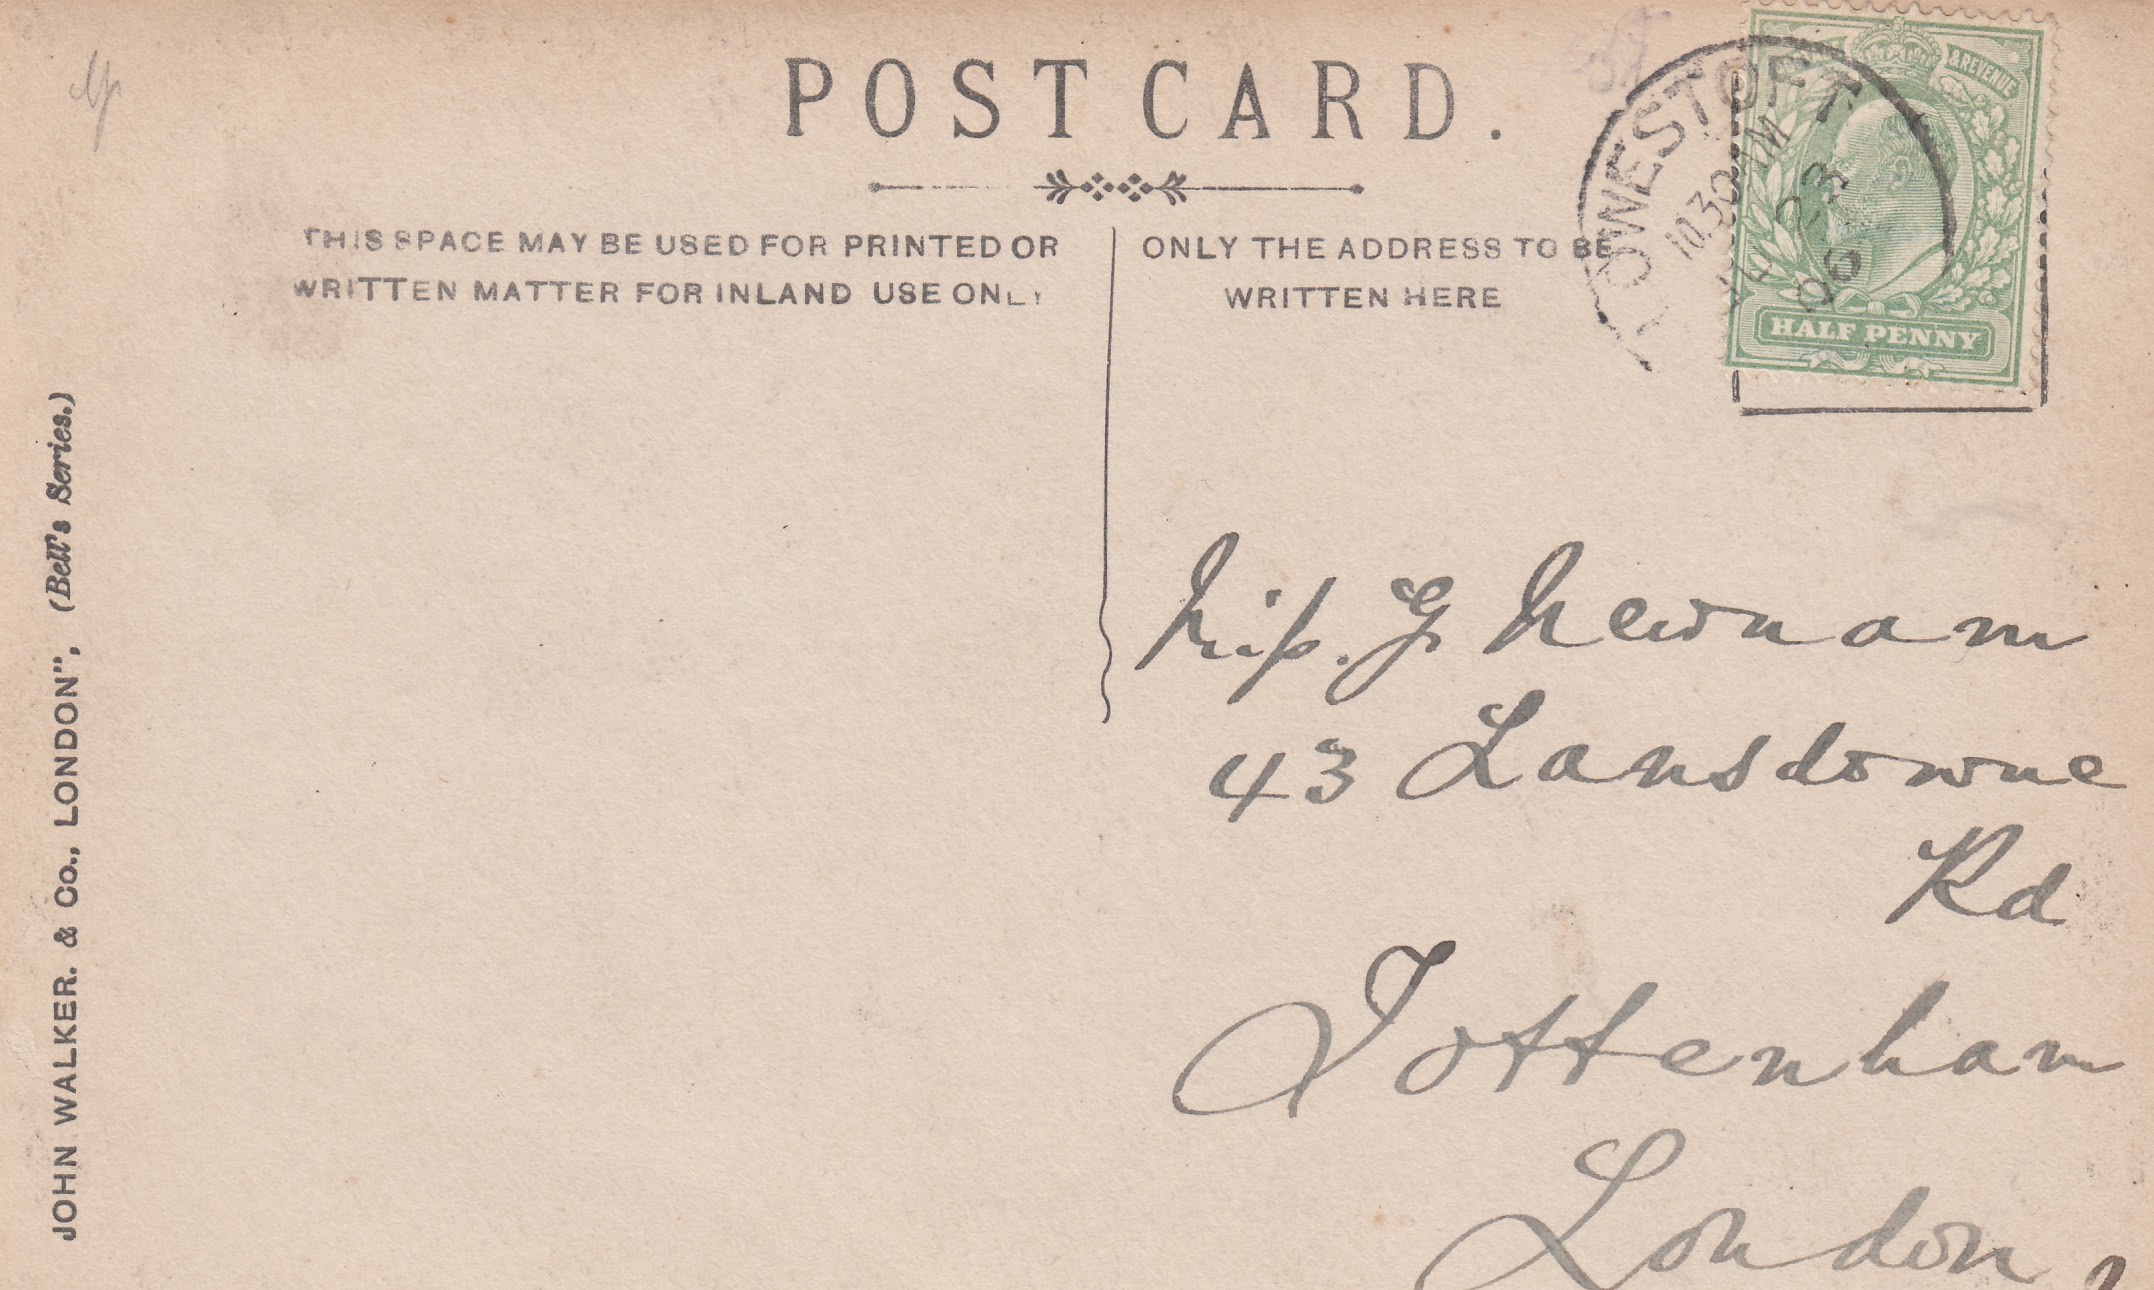 POST CARD.
THIS SPACE MAY BE USED FOR PRINTED OR
WRITTEN MATTER FOR INLAND USE ONLY
ONLY THE ADDRESS TO BE
WRITTEN HERE
LOWESTOFT
10.30 AM
JL 23
06
& REVENUE
HALF PENNY
JOHN WALKER. & Co., LONDON", (Bell's Series.)
Miss. G Newnam
43 Lansdowne
Rd
Tottenham
London